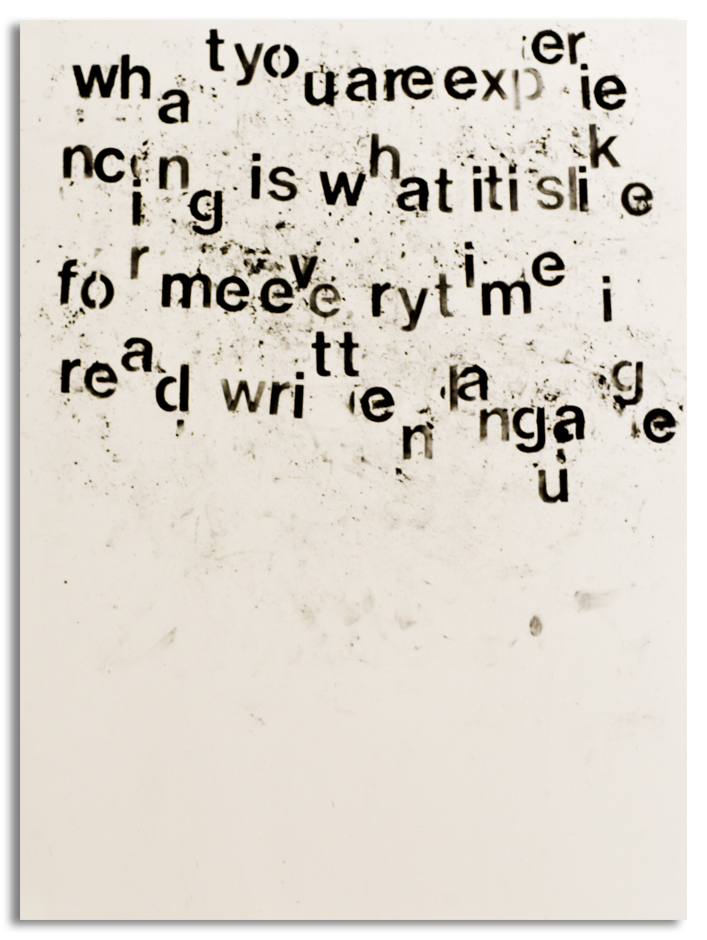 wha tyo uareexp erie
ncing is what itislike
for meeve rytime i
read written langauge